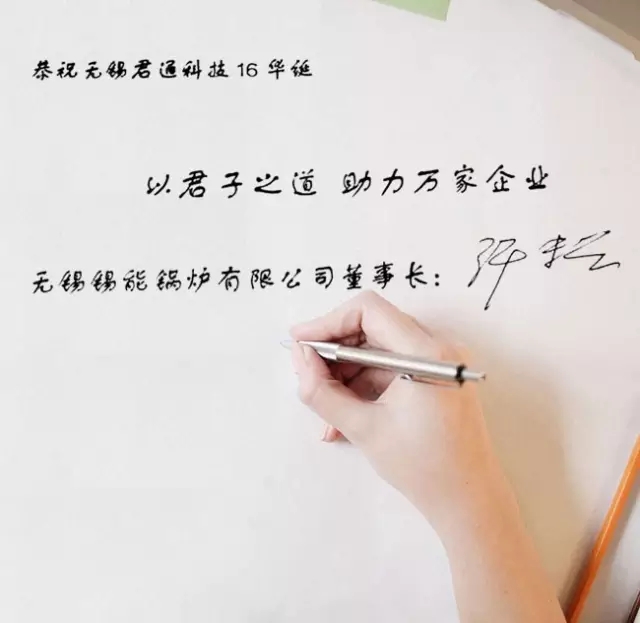 恭祝无锡君通科技16华诞
以君子之道 助力万家企业
无锡锡能锅炉有限公司董事长：